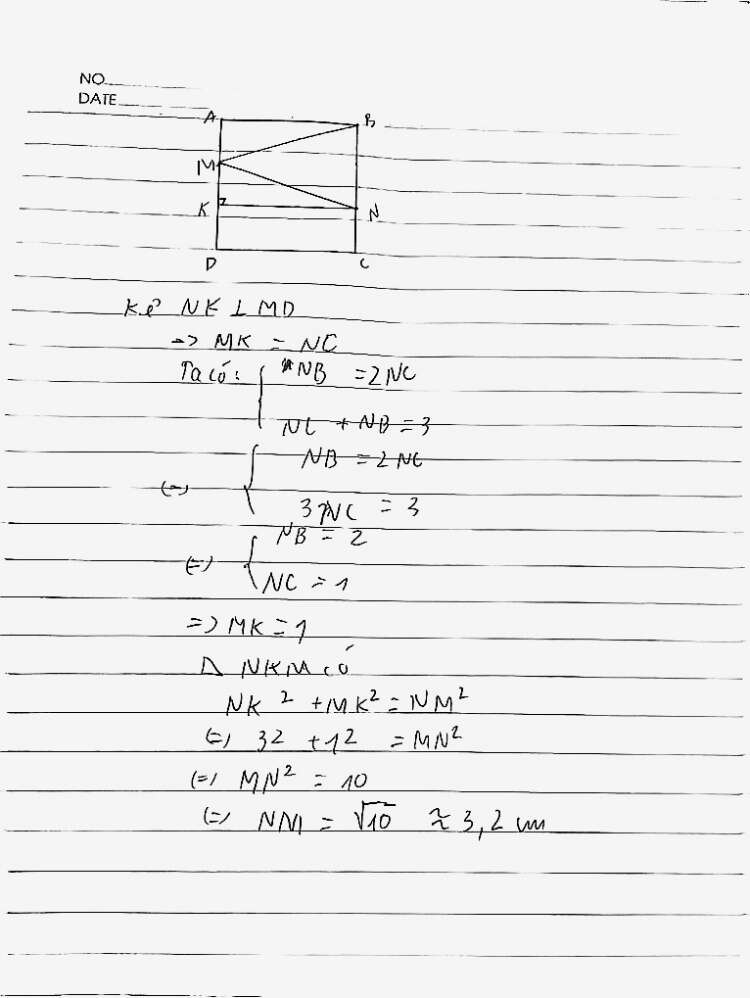 NO
DATE
A B
M
K N
D C
Kẻ NK ⊥ MD
=> MK = NC
Ta có: { NB = 2NC
NC + NB = 3
(=) { NB = 2NC
3NC = 3
(=) { NB = 2
NC = 1
=> MK = 1
Δ NKM có
NK² + MK² = NM²
(=) 3² + 1² = MN²
(=) MN² = 10
(=) NM = √10 ≈ 3,2 cm